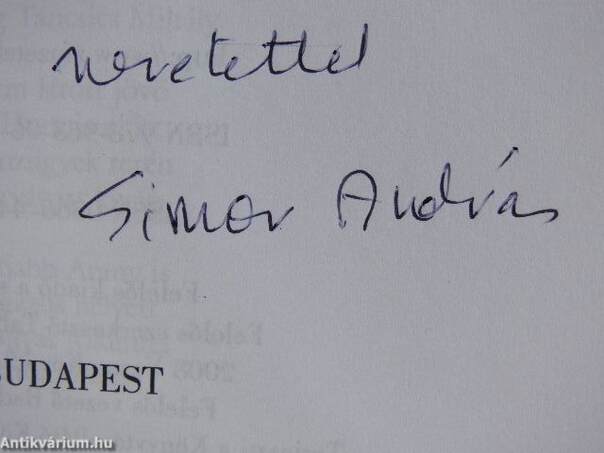 szeretettel
Simor András
BUDAPEST
Antikvárium.hu